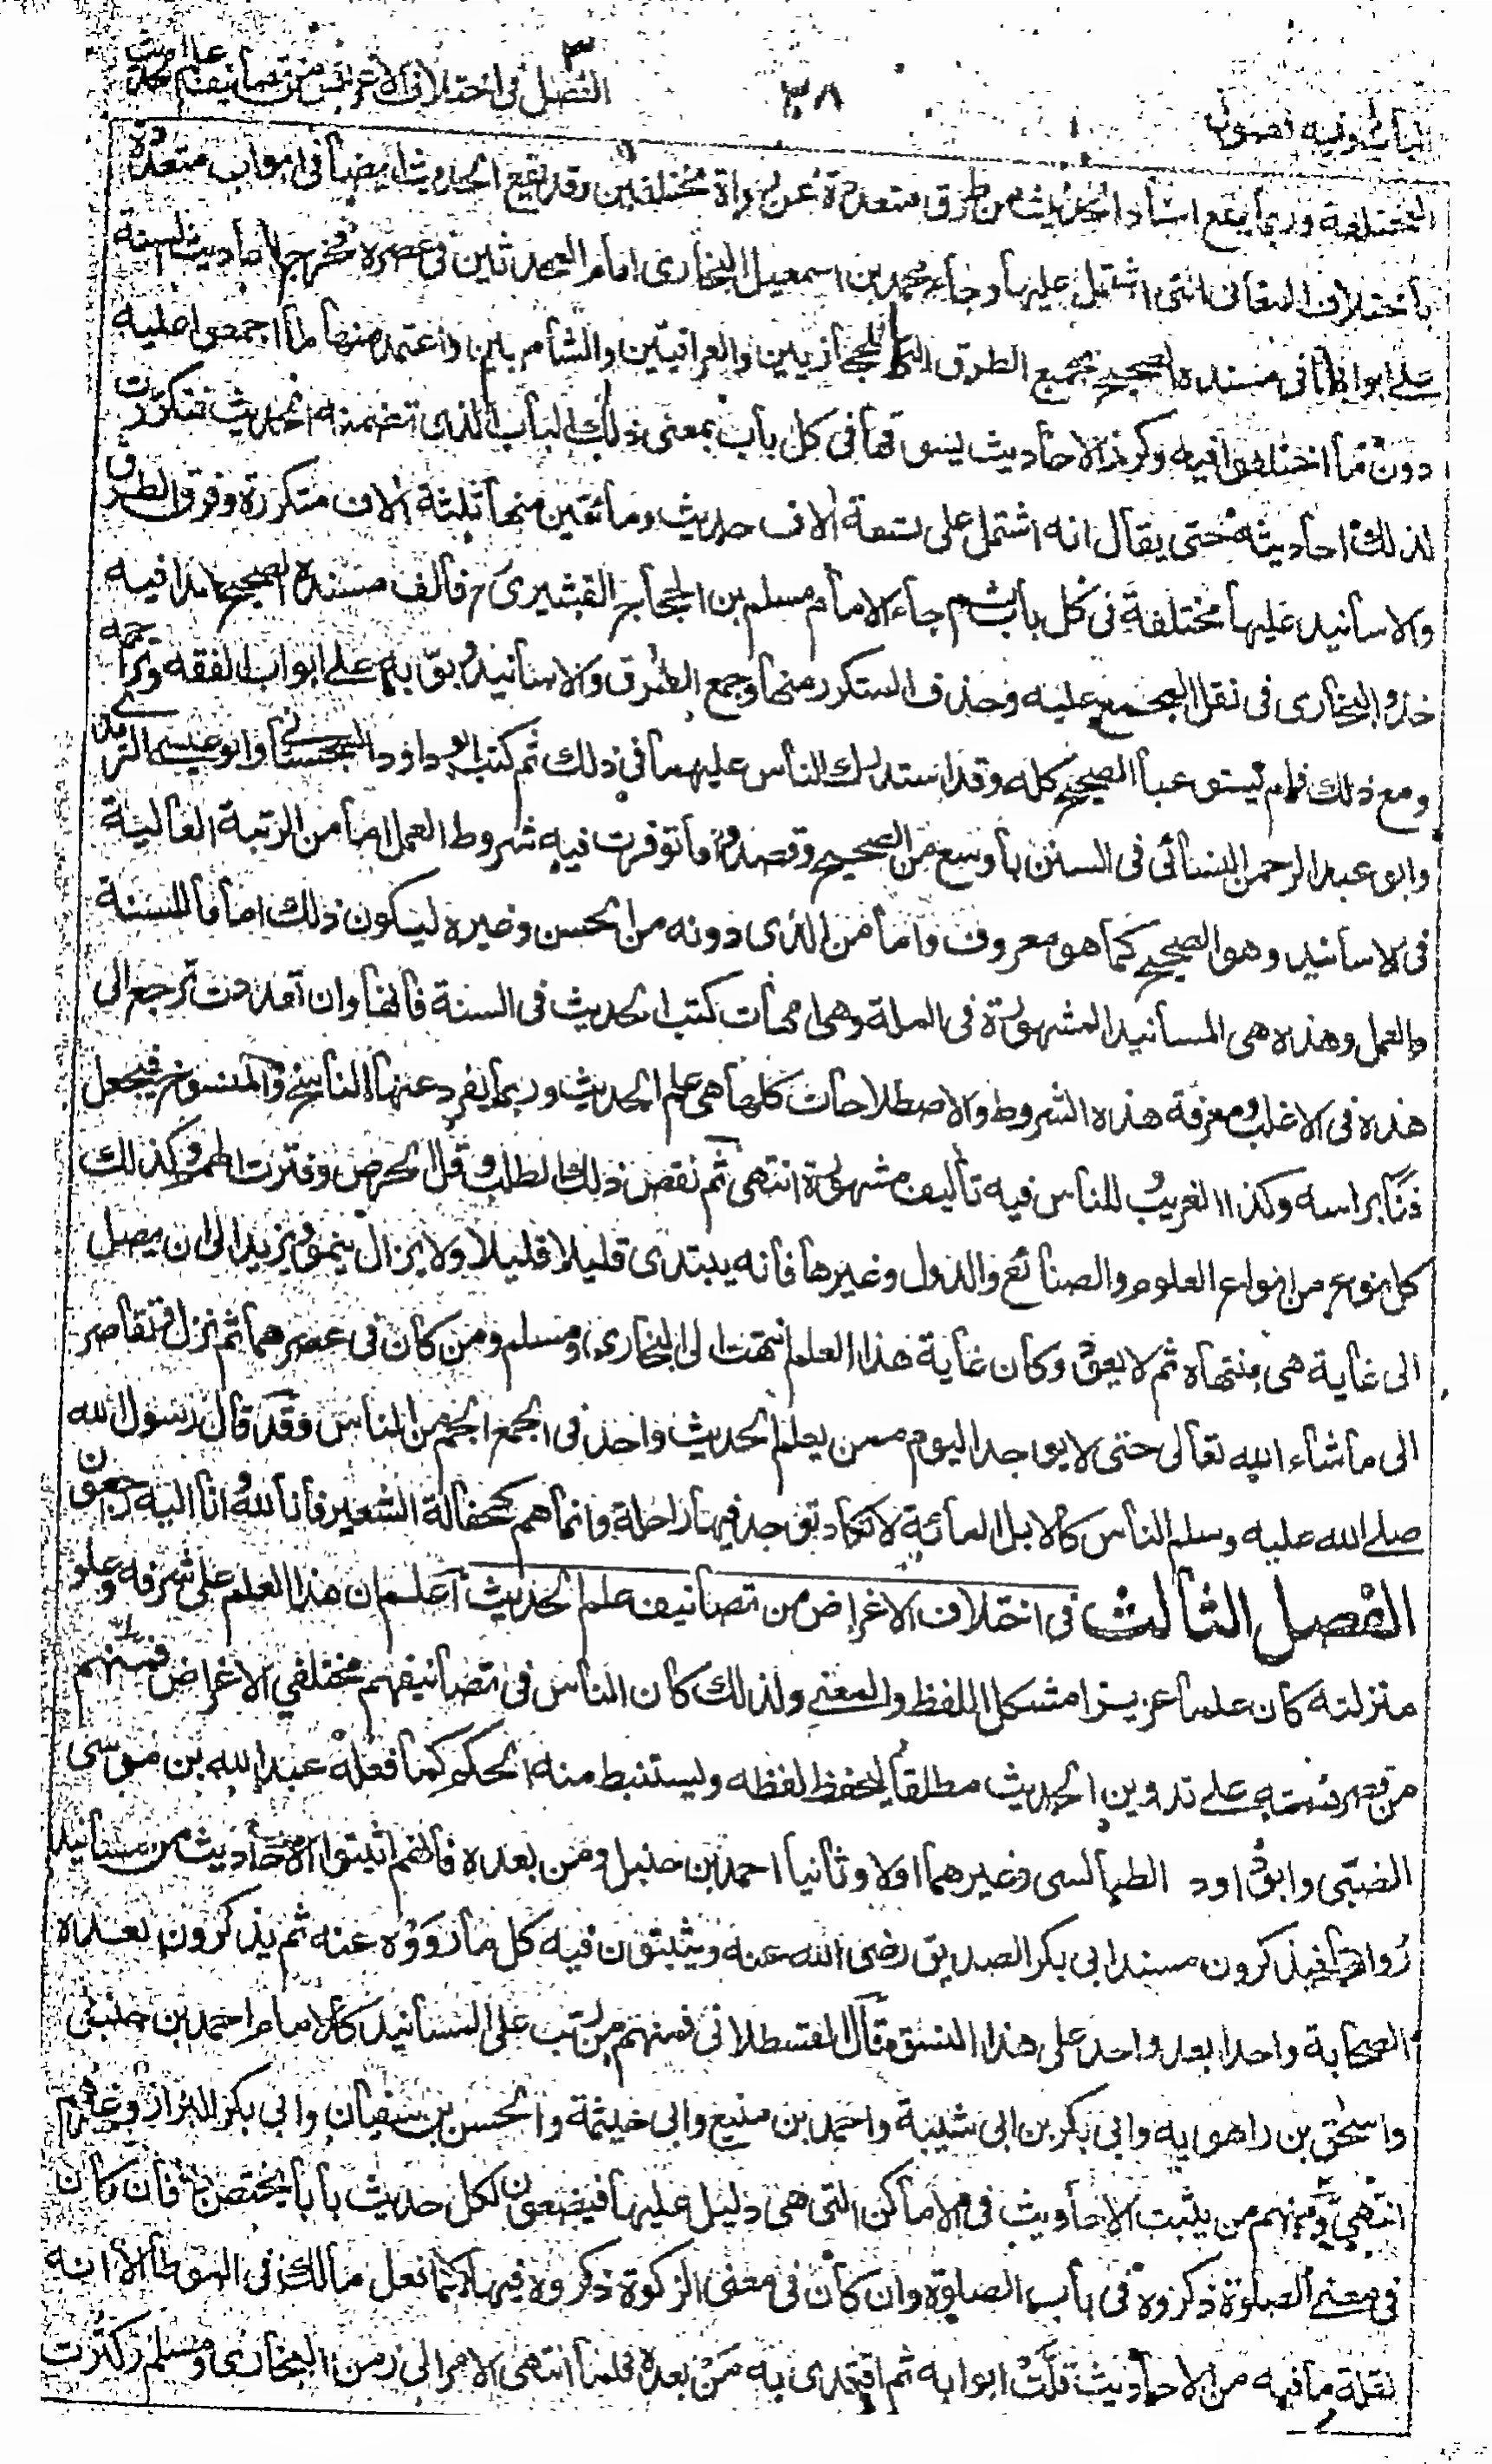 الباب الثاني وفيه فصول
٣٨
الفصل ٣ في اختلاف الاغراض من تصانيف علم الحديث
المختلفة وربما يقع اسناد الحديث من طرق متعددة عن رواة مختلفين وقد يقع الحديث ايضا في ابواب متعددة
باختلاف المعاني التي اشتمل عليها وجاء محمد بن اسمعيل البخاري امام المحدثين في عصره فخرج الاحاديث السنة
على ابوابها في مسنده الصحيح بجميع الطرق التي للحجازيين والعراقيين والشاميين واعتمد منها ما اجمعوا عليه
دون ما اختلفوا فيه وكرر الاحاديث يسوقها في كل باب بمعنى ذلك الباب الذي تضمنه الحديث فتكررت
لذلك احاديثه حتى يقال انه اشتمل على تسعة الاف حديث ومائتين منها ثلثة الاف متكررة وفرق الطرق
والاسانيد عليها مختلفة في كل باب ثم جاء الامام مسلم بن الحجاج القشيري فالف مسنده الصحيح حذا فيه
حذو البخاري في نقل المجمع عليه وحذف المتكرر منها وجمع الطرق والاسانيد وبوبه على ابواب الفقه وتراجمه
ومع ذلك فلم يستوعبا الصحيح كله وقد استدرك الناس عليهما في ذلك ثم كتب ابو داود السجستاني وابو عيسى الترمذي
وابو عبد الرحمن النسائي في السنن باوسع من الصحيح وقصدوا ما توفرت فيه شروط العمل اما من الرتبة العالية
في الاسانيد وهو الصحيح كما هو معروف واما من الذي دونه من الحسن وغيره ليكون ذلك اماما للسنة
والعمل وهذه هي المسانيد المشهورة في الملة وهي امهات كتب الحديث في السنة فانها وان تعددت ترجع الى
هذه في الاغلب ومعرفة هذه الشروط والاصطلاحات كلها هي علم الحديث وربما يفرد عنها الناسخ والمنسوخ فيجعل
فنا براسه وكذا الغريب وللناس فيه تاليف مشهورة انتهى ثم نقص ذلك الطلب وقل الحرص وفترت الهمم وكذلك
كل نوع من انواع العلوم والصنائع والدول وغيرها فانه يبتدي قليلا قليلا ولا يزال ينمو ويزيد الى ان يصل
الى غاية هي منتهاه ثم لا يعود وكان غاية هذا العلم انتهت الى البخاري ومسلم ومن كان في عصرهما ثم نزل وتقاصر
الى ما شاء الله تعالى حتى لا يوجد اليوم ممن يعلم الحديث واحد في الجمع الجم من الناس فقد قال رسول الله
صلى الله عليه وسلم الناس كالابل المائة لا تكاد توجد فيها راحلة وانما هم كحفالة الشعير فانا لله وانا اليه راجعون
الفصل الثالث في اختلاف الاغراض من تصانيف علم الحديث اعلم ان هذا العلم على شرفه وعلو
منزلته كان علما عزيزا مشكل اللفظ والمعنى ولذلك كان الناس في تصانيفهم مختلفي الاغراض فمنهم
من قصر همته على تدوين الحديث مطلقا ليحفظ لفظه وليستنبط منه الحكم كما فعله عبد الله بن موسى
الضبي وابو داود الطيالسي وغيرهما اولا وثانيا احمد بن حنبل ومن بعده فانهم اثبتوا الاحاديث من مسانيد
رواتها فيذكرون مسند ابي بكر الصديق رضي الله عنه ويثبتون فيه كل ما رووه عنه ثم يذكرون بعده
الصحابة واحدا بعد واحد على هذا النسق قال القسطلاني فمنهم من رتب على المسانيد كالامام احمد بن حنبل
واسحق بن راهويه وابي بكر بن ابي شيبة واحمد بن منيع وابي خيثمة والحسن بن سفيان وابي بكر البزار وغيرهم
انتهى ومنهم من يثبت الاحاديث في الاماكن التي هي دليل عليها فيضعون لكل حديث بابا يختص به فان كان
في معنى الصلوة ذكروه في باب الصلوة وان كان في معنى الزكوة ذكروه فيها كما فعل مالك في الموطا الا انه
لقلة ما فيه من الاحاديث قلت ابوابه ثم اقتدى به من بعده فلما انتهى الامر الى زمن البخاري ومسلم وكثرت